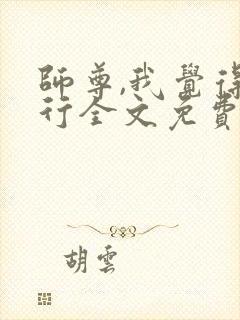 師尊,我覺得
行全文免費
胡雲